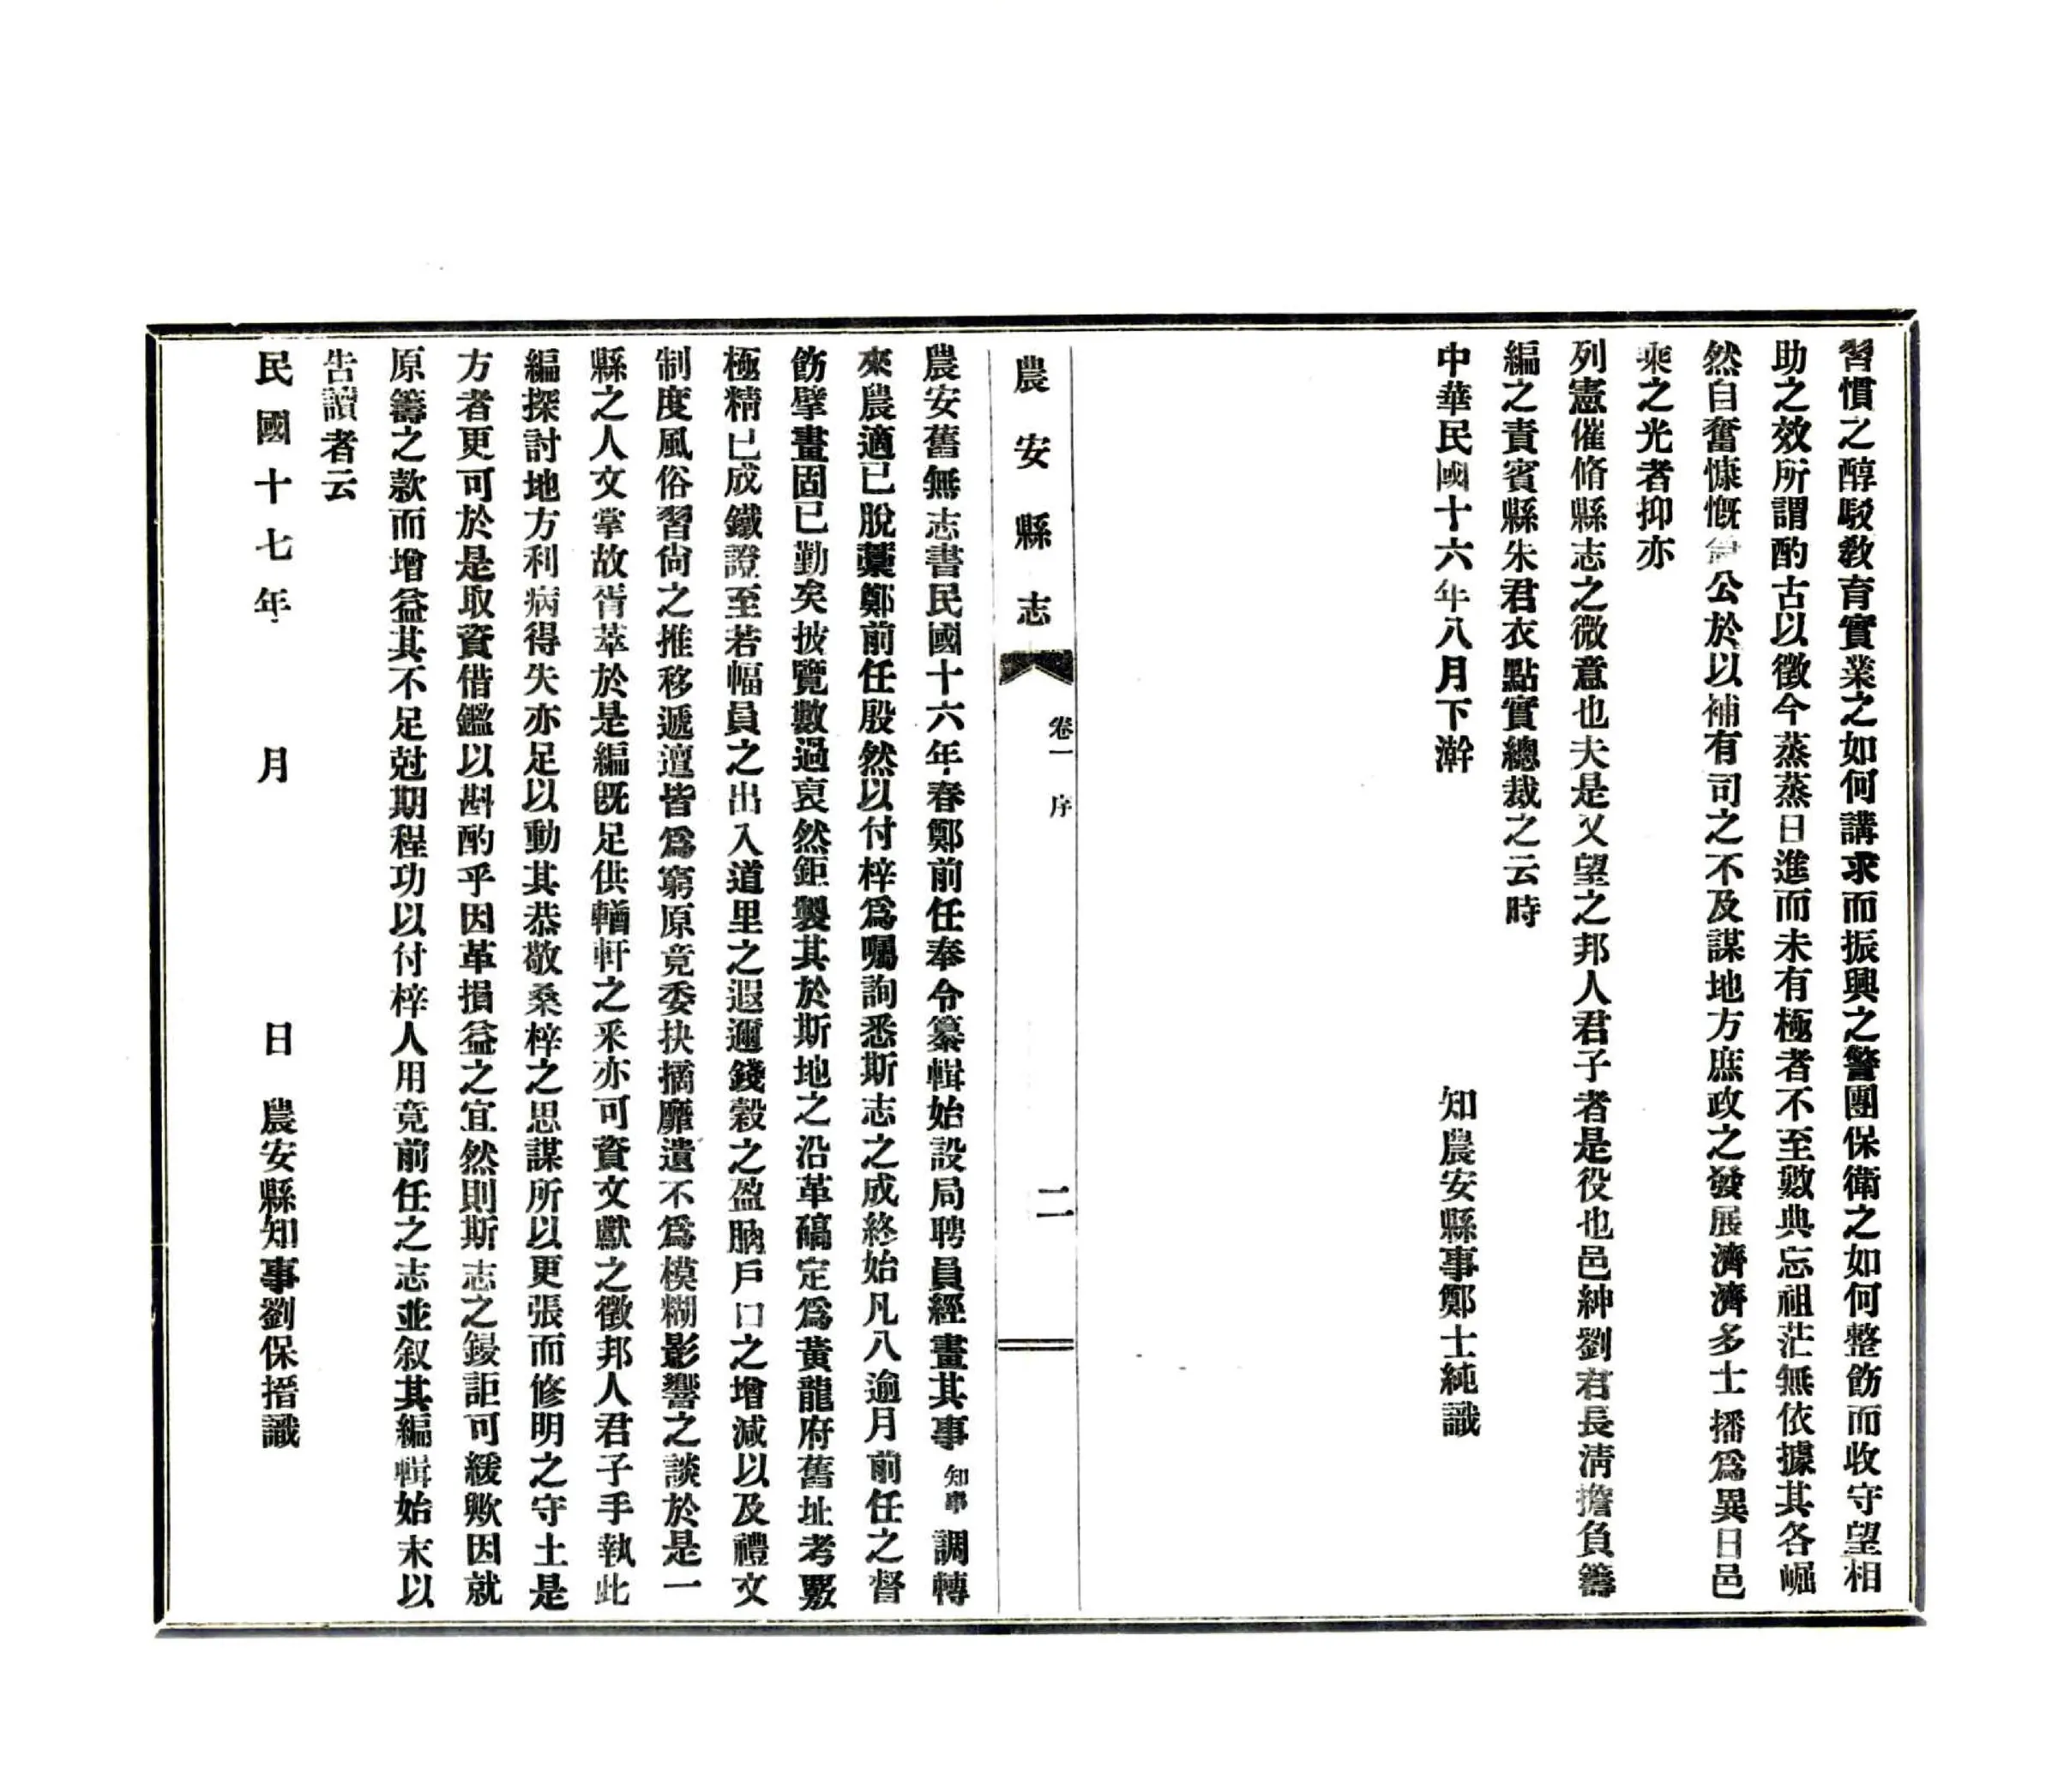 習慣之醇駁敎育實業之如何講求而振興之警團保衛之如何整飭而收守望相
助之效所謂酌古以徵今蒸蒸日進而未有極者不至數典忘祖茫無依據其各崛
然自奮慷慨公於以補有司之不及謀地方庶政之發展濟濟多士播爲異日邑
乘之光者抑亦
列憲催脩縣志之微意也夫是又望之邦人君子者是役也邑紳劉君長淸擔負籌
編之責賓縣朱君衣點實總裁之云時
中華民國十六年八月下澣　知農安縣事鄭士純識
農安縣志　卷一　序　二
農安舊無志書民國十六年春鄭前任奉令纂輯始設局聘員經畫其事知事調轉
來農適已脫藁鄭前任殷然以付梓爲囑詢悉斯志之成終始凡八逾月前任之督
飭擘畫固已勤矣披覽數過裒然鉅製其於斯地之沿革碻定爲黃龍府舊址考覈
極精已成鐵證至若幅員之出入道里之遐邇錢穀之盈朒戶口之增減以及禮文
制度風俗習尙之推移遞澶皆爲窮原竟委抉摘靡遺不爲模糊影響之談於是一
縣之人文掌故胥萃於是編旣足供輶軒之釆亦可資文獻之徵邦人君子手執此
編探討地方利病得失亦足以動其恭敬桑梓之思謀所以更張而修明之守土是
方者更可於是取資借鑑以斟酌乎因革損益之宜然則斯志之鋟詎可緩歟因就
原籌之款而增益其不足尅期程功以付梓人用竟前任之志並叙其編輯始末以
吿讀者云
民國十七年　月　日　農安縣知事劉保搢識